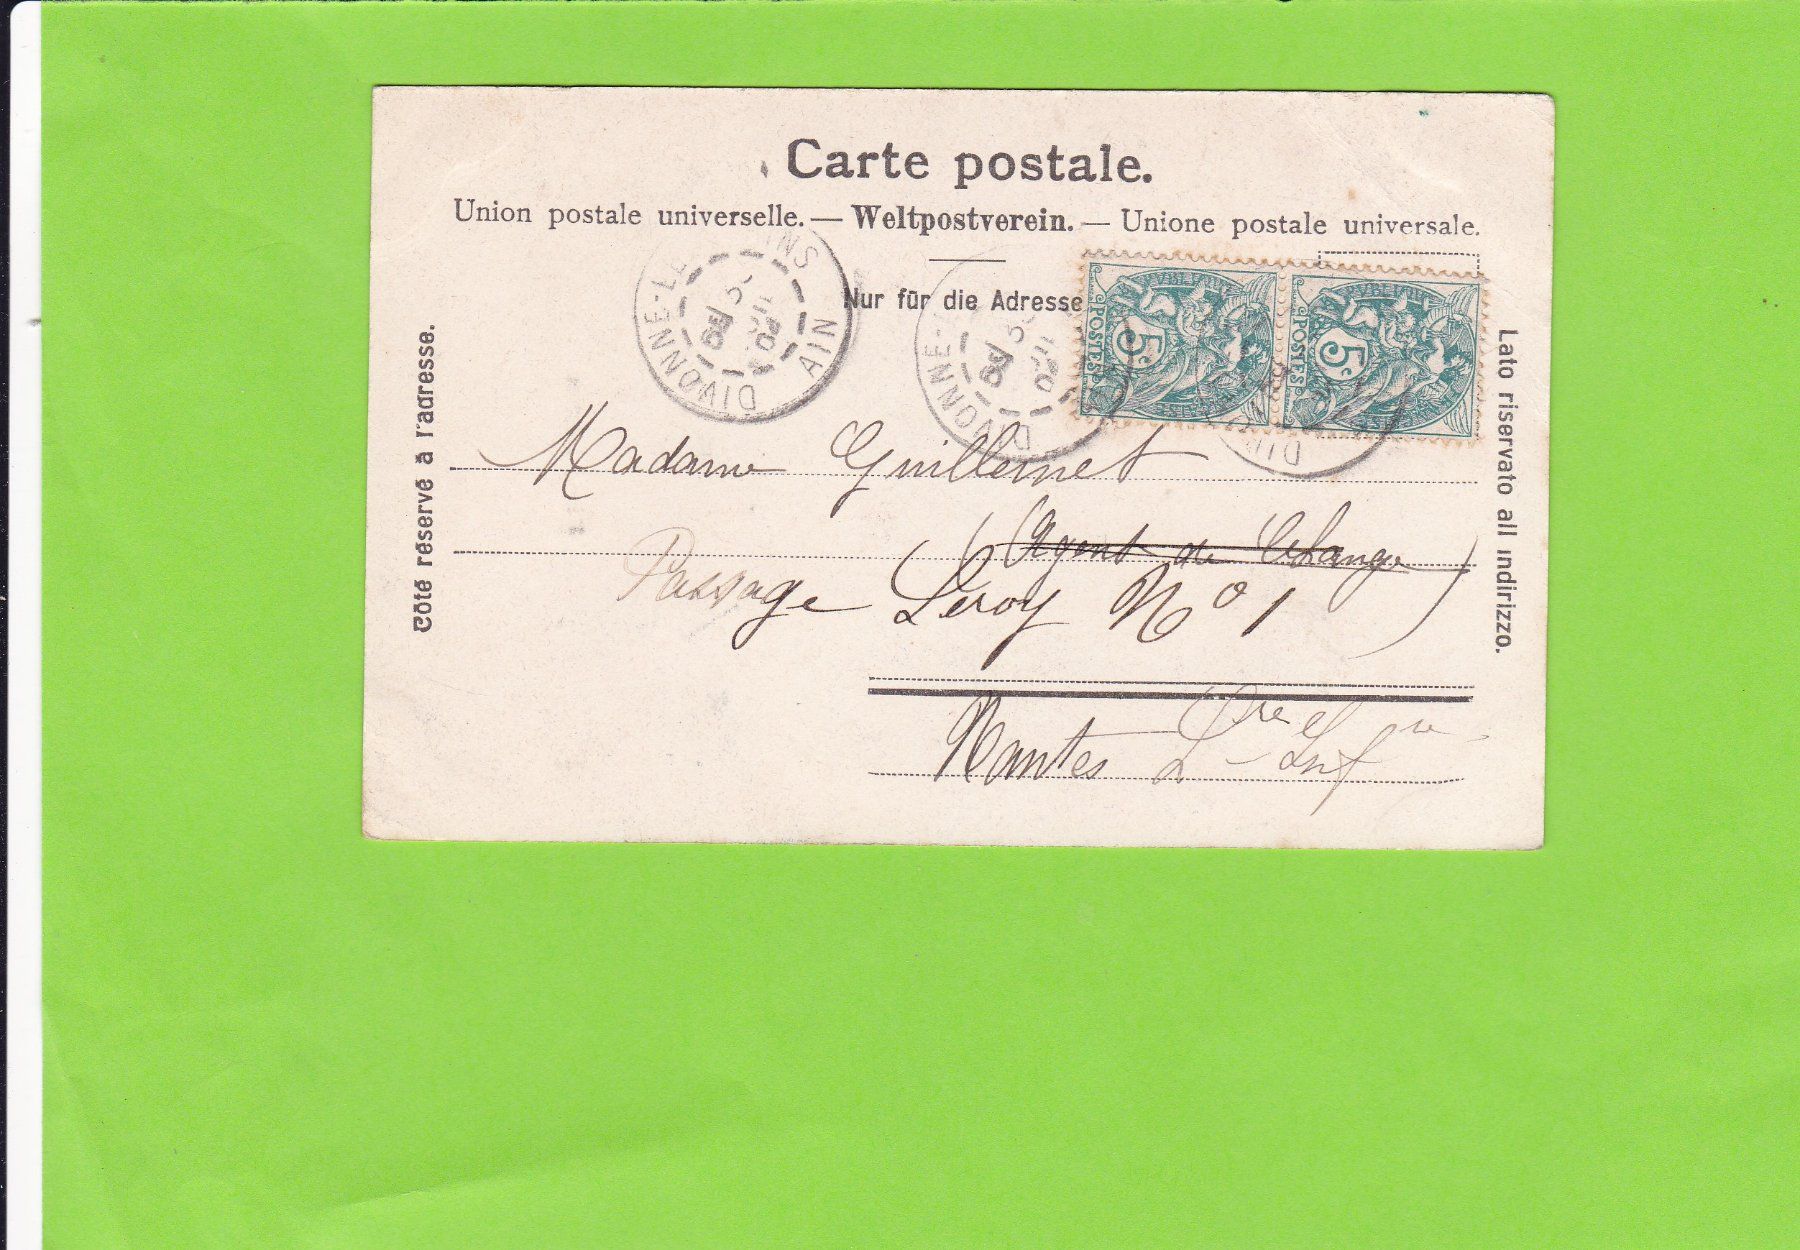 Carte postale.
Union postale universelle. — Weltpostverein. — Unione postale universale.
Nur für die Adresse
Côté réservé à l'adresse.
Lato riservato all indirizzo.
DIVONNE-LES-BAINS
AIN
DIVONNE-
POSTES 5c
POSTES 5c
Madame Guillemet
(Agent de Change)
Passage Leroy No 1
Nantes Lre Infre